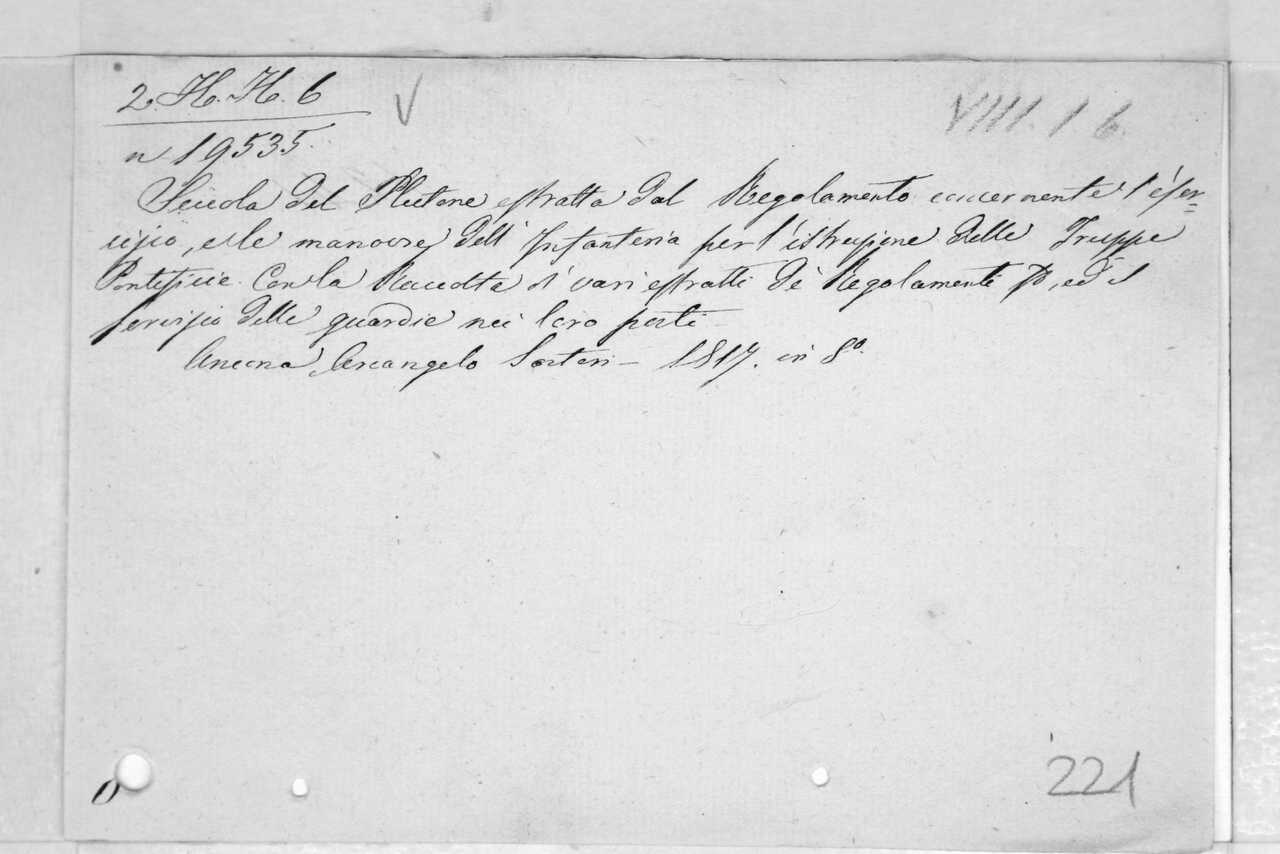 2. H. H. 6
V
VIII. 1 6
n 19535.
Scuola del Plutone estratta dal Regolamento concernente l'eser=
cizio, e le manovre dell' Infanteria per l'istruzione delle Truppe
Pontificie. Con la Raccolta di vari estratti de Regolamenti, ed il
servizio delle guardie nei loro posti
Ancona, Arcangelo Sartori - 1817. in 8º.
221